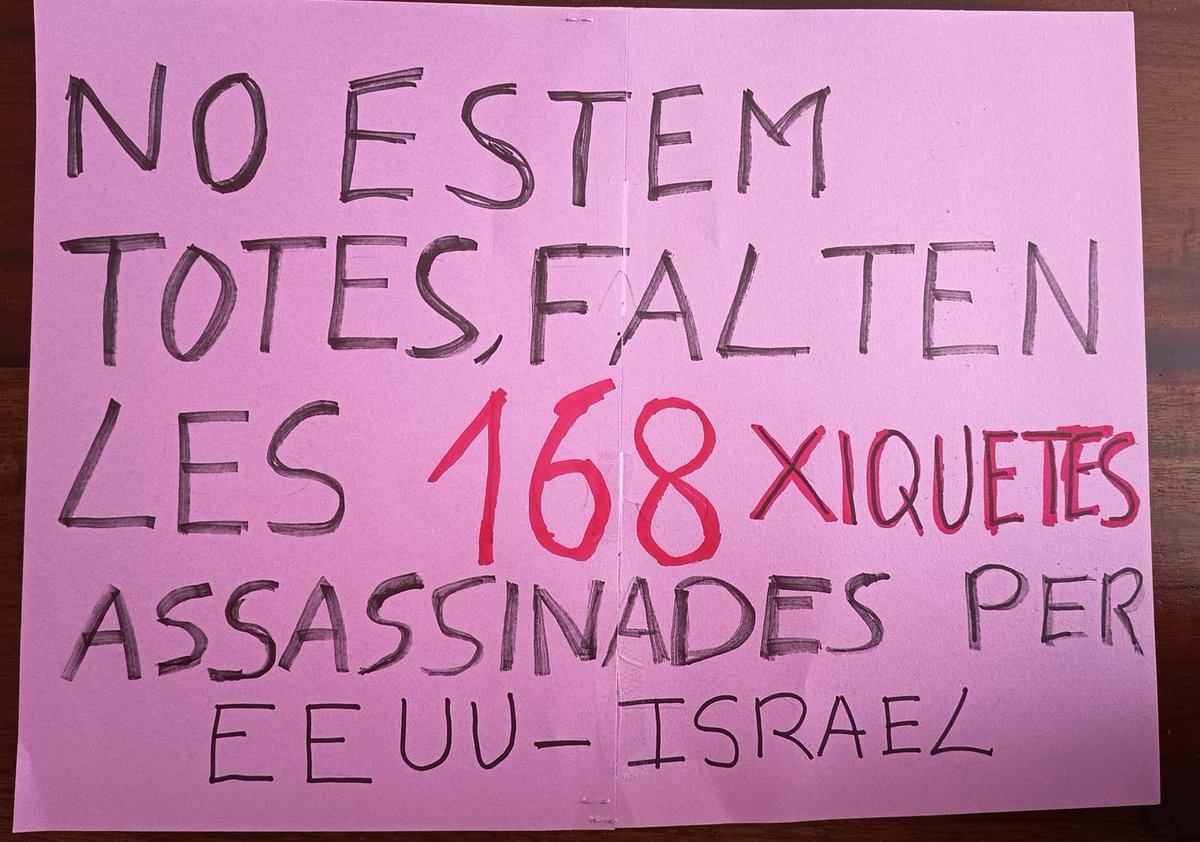 NO ESTEM
TOTES, FALTEN
LES 168 XIQUETES
ASSASSINADES PER
EEUU-ISRAEL